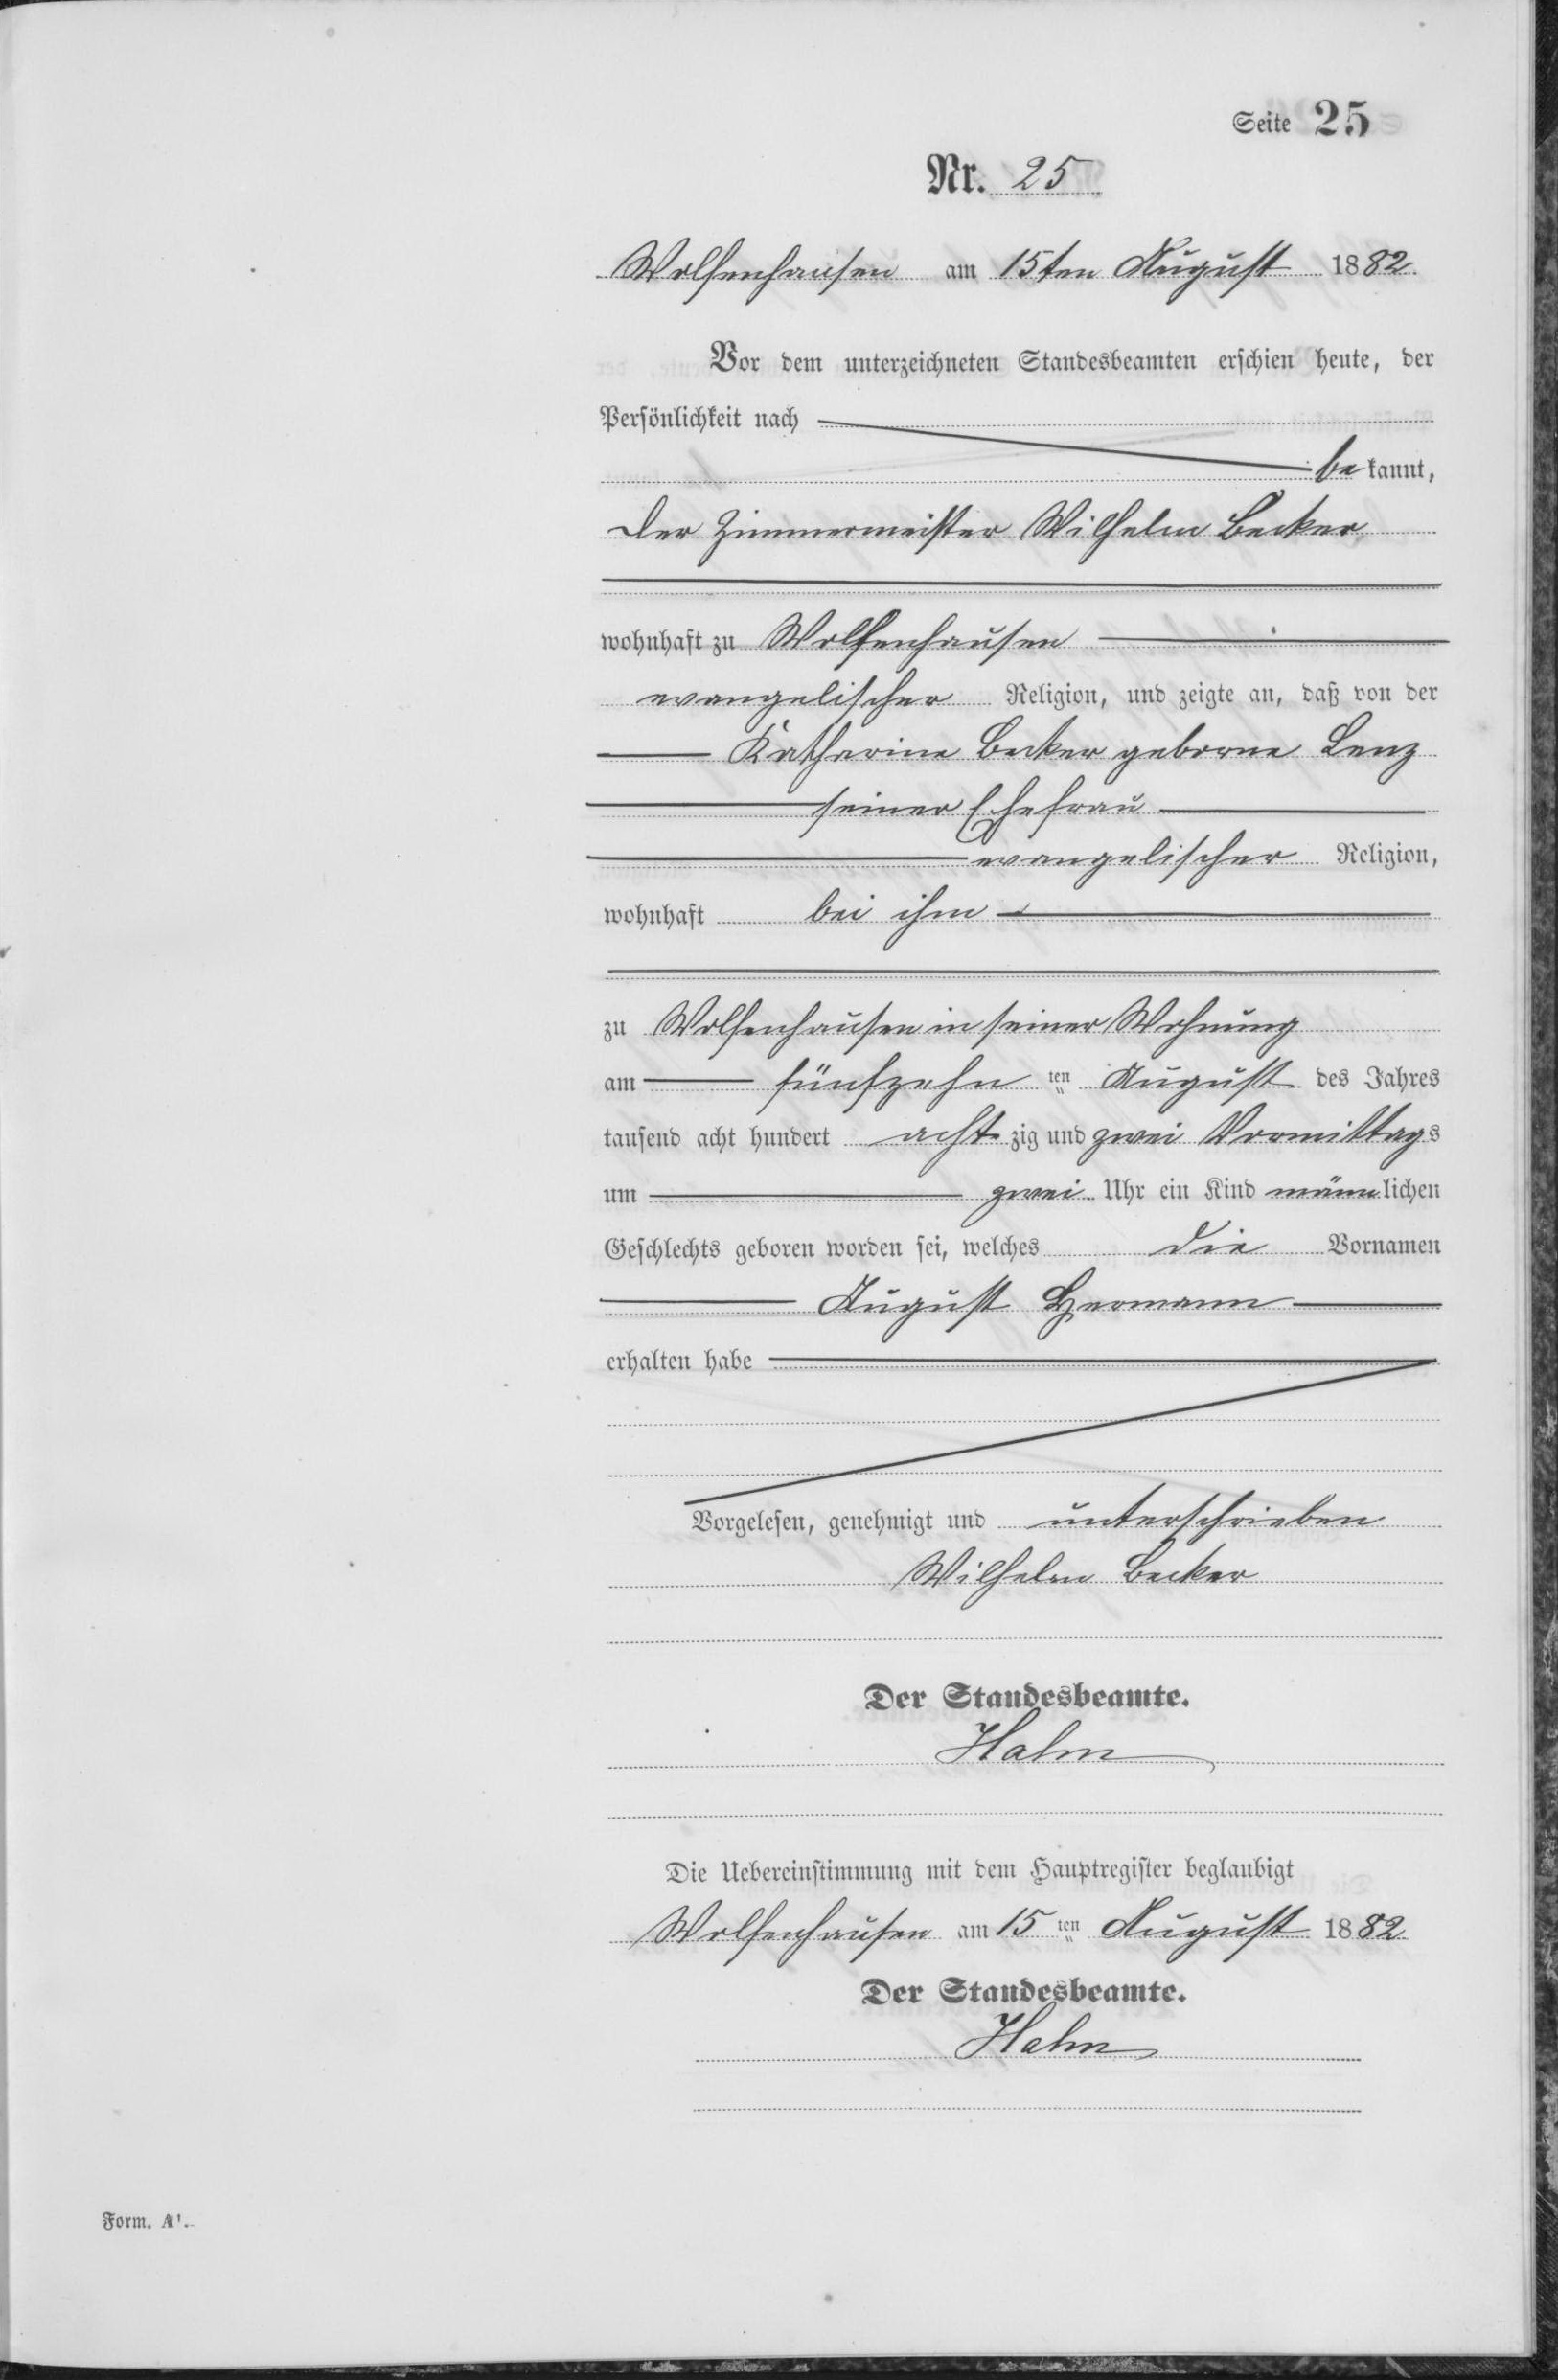 Seite 25
Nr. 25
Wolfenhausen am 15ten August 1882.
Vor dem unterzeichneten Standesbeamten erschien heute, der
Persönlichkeit nach
bekannt,
der Zimmermeister Wilhelm Becker,
wohnhaft zu Wolfenhausen
evangelischer Religion, und zeigte an, daß von der
Katharine Becker geborne Lenz
seiner Ehefrau
evangelischer Religion,
wohnhaft bei ihm
zu Wolfenhausen in seiner Wohnung
am fünfzehn ten August des Jahres
tausend acht hundert achtzig und zwei Vormittags
um zwei Uhr ein Kind männlichen
Geschlechts geboren worden sei, welches die Vornamen
August Hermann
erhalten habe
Vorgelesen, genehmigt und unterschrieben
Wilhelm Becker
Der Standesbeamte.
Hahn
Die Uebereinstimmung mit dem Hauptregister beglaubigt
Wolfenhausen am 15 ten August 1882.
Der Standesbeamte.
Hahn
Form. A¹.